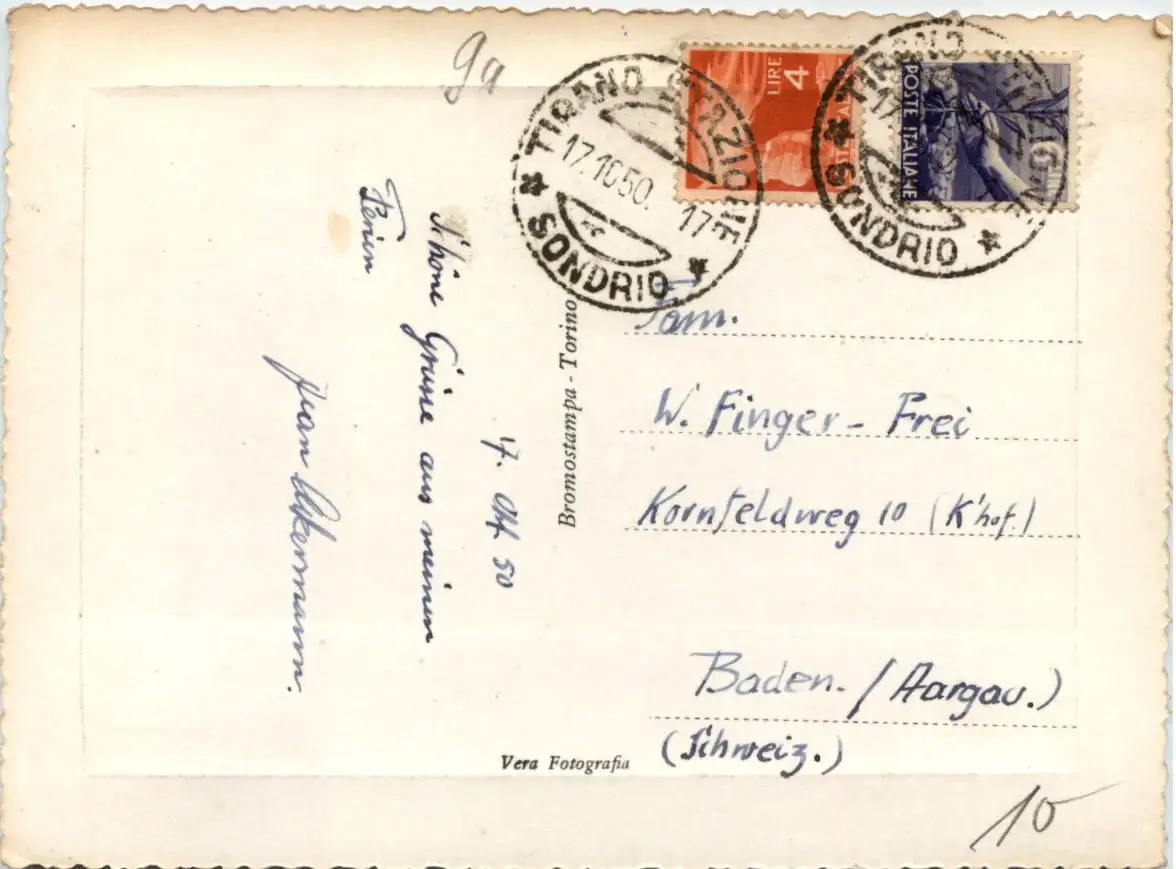 9a
TIRANO STAZIONE
17.10.50. 17
SONDRIO
LIRE 4
TIRANO STAZIONE
17
SONDRIO
POSTE ITALIANE
6
17. Okt 50
Schöne Grüsse aus meinen
Ferien
Jean Ackermann.
Bromostampa - Torino
Vera Fotografia
Fam.
W. Finger - Frei
Kornfeldweg 10 (K'hof.)
Baden. / Aargau.)
(Schweiz.)
10